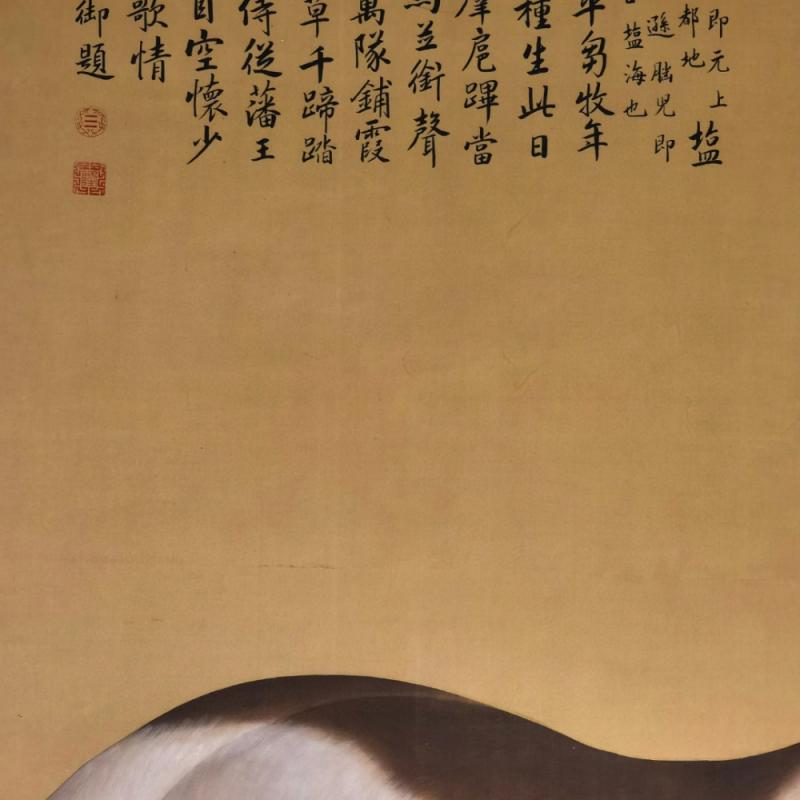 即元上
都地
塩
遜腦兒即
塩海也
芻牧年
種生此日
羣扈蹕當
並銜聲
萬隊鋪霞
草千蹄踏
侍從藩王
目空懷少
歌情
御題